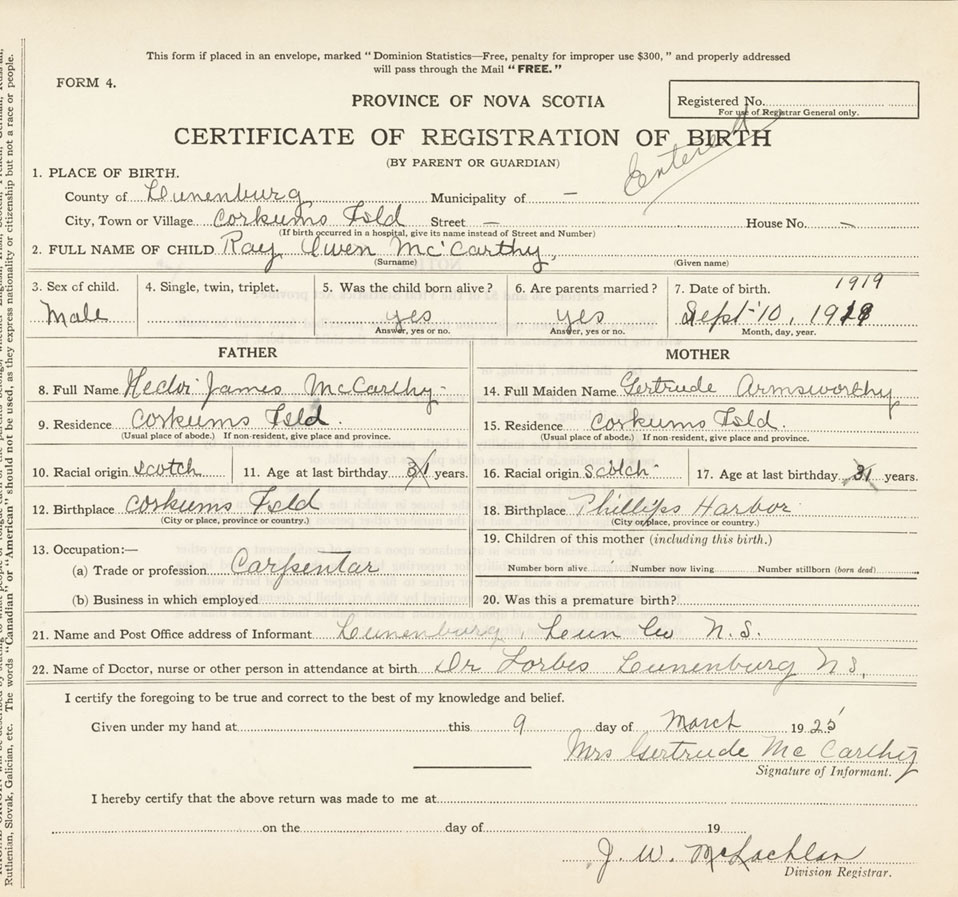 This form if placed in an envelope, marked “ Dominion Statistics—Free, penalty for improper use $300, ” and properly addressed
will pass through the Mail “ FREE. ”
FORM 4.
PROVINCE OF NOVA SCOTIA
Registered No.
For use of Registrar General only.
CERTIFICATE OF REGISTRATION OF BIRTH
(BY PARENT OR GUARDIAN)
Entered
1. PLACE OF BIRTH.
County of Lunenburg Municipality of —
City, Town or Village Corkums Isld Street — House No. —
(If birth occurred in a hospital, give its name instead of Street and Number)
2. FULL NAME OF CHILD Ray Owen McCarthy,
(Surname) (Given name)
3. Sex of child. 4. Single, twin, triplet. 5. Was the child born alive ? 6. Are parents married ? 7. Date of birth. 1919
Male yes yes Sept 10, 1918
Answer, yes or no. Answer, yes or no. Month, day, year.
FATHER MOTHER
8. Full Name Hector James McCarthy 14. Full Maiden Name Gertrude Armsworthy
9. Residence Corkums Isld. 15. Residence Corkums Isld.
(Usual place of abode.) If non-resident, give place and province. (Usual place of abode.) If non-resident, give place and province.
10. Racial origin Scotch 11. Age at last birthday 31 years. 16. Racial origin Scotch 17. Age at last birthday 31 years.
12. Birthplace Corkums Isld 18. Birthplace Phillips Harbor
(City or place, province or country.) (City or place, province or country.)
13. Occupation:— 19. Children of this mother (including this birth.)
(a) Trade or profession Carpentar Number born alive Number now living Number stillborn (born dead)
(b) Business in which employed 20. Was this a premature birth?
21. Name and Post Office address of Informant Lunenburg, Lun Co N.S.
22. Name of Doctor, nurse or other person in attendance at birth Dr Forbes Lunenburg N S,
I certify the foregoing to be true and correct to the best of my knowledge and belief.
Given under my hand at this 9 day of March 1925
Mrs Gertrude Mc Carthy
Signature of Informant.
I hereby certify that the above return was made to me at
on the day of 19
J. W. McLachlan
Division Registrar.
Ruthenian, Slovak, Galician, etc. The words “Canadian” or “American” should not be used, as they express nationality or citizenship but not a race or people.